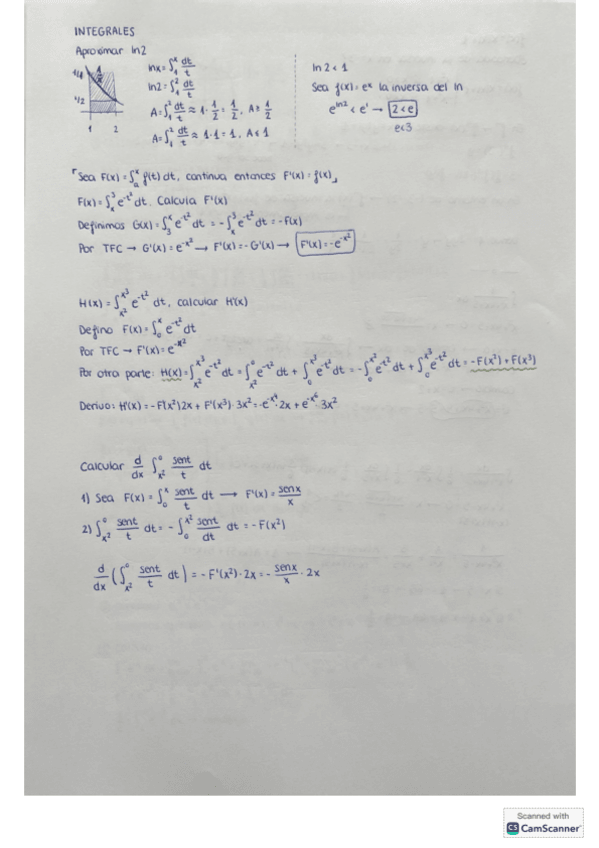 INTEGRALES
Aproximar ln2
1/t
1/2
1 2
lnx = ∫₁ˣ dt/t
ln2 = ∫₁² dt/t
A = ∫₁² dt/t ≈ 1 · 1/2 = 1/2, A ≥ 1/2
A = ∫₁² dt/t ≈ 1 · 1 = 1, A < 1
ln 2 < 1
Sea f(x) = eˣ la inversa del ln
e^ln2 < e¹ → 2 < e
e < 3
「Sea F(x) = ∫ₐˣ f(t) dt, continua entonces F'(x) = f(x)」
F(x) = ∫ₓ³ e^-t² dt. Calcula F'(x)
Definimos G(x) = ∫₃ˣ e^-t² dt = -∫ₓ³ e^-t² dt = -F(x)
Por TFC → G'(x) = e^-x² → F'(x) = -G'(x) → F'(x) = -e^-x²
H(x) = ∫_x²^x³ e^-t² dt, calcular H'(x)
Defino F(x) = ∫₀ˣ e^-t² dt
Por TFC → F'(x) = e^-x²
Por otra parte: H(x) = ∫_x²^x³ e^-t² dt = ∫_x²^0 e^-t² dt + ∫_0^x³ e^-t² dt = -∫_0^x² e^-t² dt + ∫_0^x³ e^-t² dt = -F(x²) + F(x³)
Derivo: H'(x) = -F'(x²) 2x + F'(x³) · 3x² = -e^-x⁴ · 2x + e^-x⁶ 3x²
Calcular d/dx ∫_x²^0 sent/t dt
1) Sea F(x) = ∫₀ˣ sent/t dt → F'(x) = senx/x
2) ∫_x²^0 sent/t dt = -∫_0^x² sent/dt dt = -F(x²)
d/dx (∫_x²^0 sent/t dt) = -F'(x²) · 2x = -senx/x · 2x
Scanned with
CS CamScanner